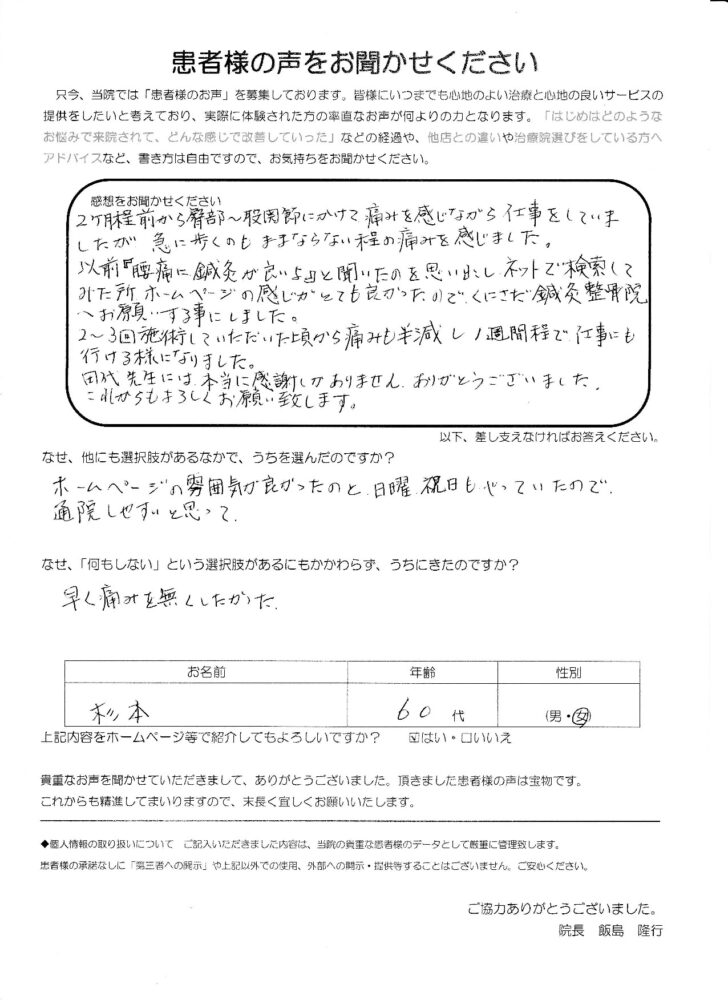 患者様の声をお聞かせください
只今、当院では「患者様のお声」を募集しております。皆様にいつまでも心地のよい治療と心地の良いサービスの
提供をしたいと考えており、実際に体験された方の率直なお声が何よりの力となります。「はじめはどのような
お悩みで来院されて、どんな感じで改善していった」などの経過や、他店との違いや治療院選びをしている方へ
アドバイスなど、書き方は自由ですので、お気持ちをお聞かせください。
感想をお聞かせください
2ヶ月程前から臀部〜股関節にかけて痛みを感じながら仕事をしていま
したが 急に歩くのもままならない程の痛みを感じました。
以前『腰痛に鍼灸が良いよ』と聞いたのを思い出し ネットで検索して
みた所 ホームページの感じがとても良かったので、くにさだ鍼灸整骨院
へお願いする事にしました。
2〜3回施術していただいた頃から痛みも半減し 1週間程で仕事にも
行ける様になりました。
田代先生には本当に感謝しかありません。ありがとうございました。
これからもよろしくお願い致します。
以下、差し支えなければお答えください。
なぜ、他にも選択肢があるなかで、うちを選んだのですか?
ホームページの雰囲気が良かったのと 日曜 祝日もやっていたので、
通院しやすいと思って、
なぜ、「何もしない」という選択肢があるにもかかわらず、うちにきたのですか?
早く痛みを無くしたかった、
お名前 年齢 性別
杉本 60代 (男・女)
上記内容をホームページ等で紹介してもよろしいですか? ☑はい・□いいえ
貴重なお声を聞かせていただきまして、ありがとうございました。頂きました患者様の声は宝物です。
これからも精進してまいりますので、末長く宜しくお願いいたします。
◆個人情報の取り扱いについて ご記入いただきました内容は、当院の貴重な患者様のデータとして厳重に管理致します。
患者様の承諾なしに「第三者への開示」や上記以外での使用、外部への開示・提供等することはございません。ご安心ください。
ご協力ありがとうございました。
院長 飯島 隆行